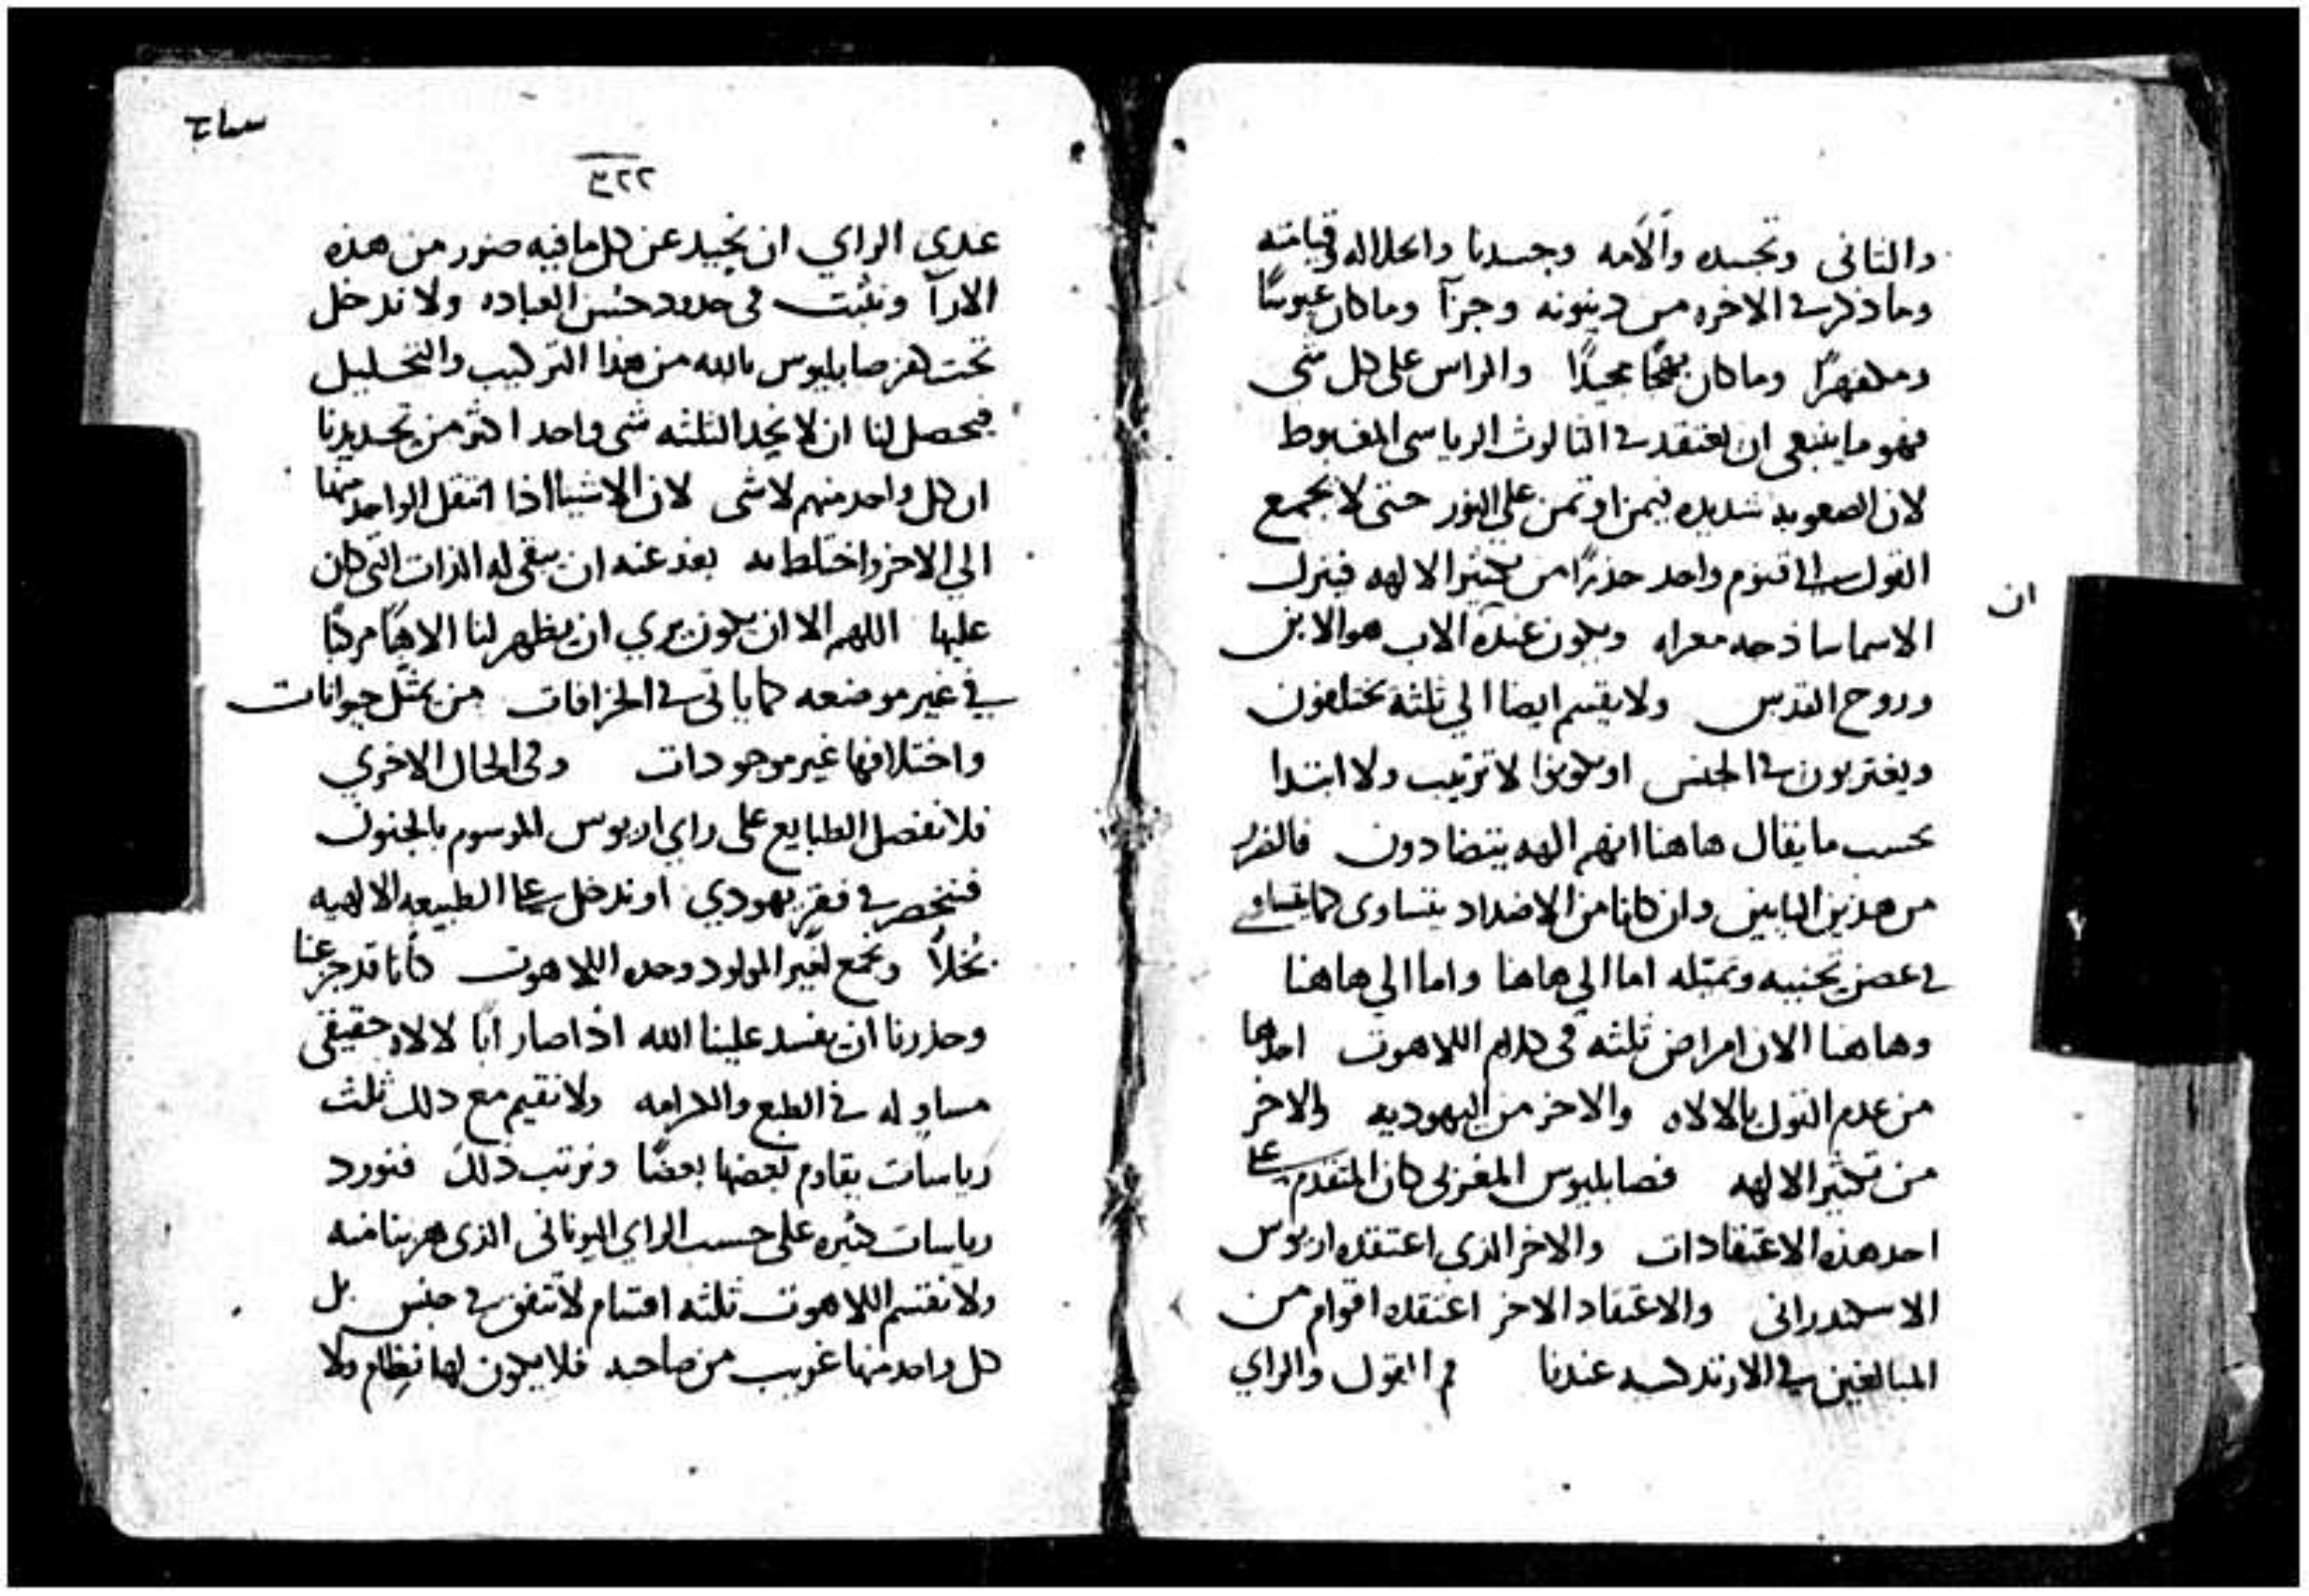 والثاني وتجسده والآمه وجسدنا وانحلاله وقيامته
وما ذكر في الاخره من دينونه وجزآ وما كان عبوسًا
وما كان مجيدًا والراس على كل شي
فهو ما ينبغي ان نعتقد في الثالوث الرياسي المغبوط
لان الصعوبه شديده فيمن اوتمن علي النور حتى لا يجمع
القول الى اقنوم واحد حذرًا من تكثير الالهه فيترك
ان
الاسما ساذجه معراه ويكون عنده الاب هو الابن
وروح القدس ولا يقسم ايضا الي ثلثة يختلفون
ويفتربون في الجنس او يكونوا لا ترتيب ولا ابتدا
بحسب ما يقال هاهنا انهم الهه يتضادون
من هذين البابين وان كانا من الاضداد يتساوى كما يتساوى
في غصن تحنيه وتميله اما الي هاهنا واما الي هاهنا
وهاهنا الان امراض ثلثه في كلام اللاهوت احدها
من عدم القول بالالاه والاخر من اليهوديه والاخر
من تكثير الالهه فصابليوس المغربي كان المتقدم على
احد هذه الاعتقادات والاخر الذي اعتقده اريوس
الاسكندراني والاعتقاد الاخر اعتقده اقوام من
المبالغين في الارتدكسيه عندنا فما القول والراي
٣٢٢
عندي الراي ان نحيد عن كل ما فيه ضرر من هذه
الارآ ونثبت في حدود حسن العباده ولا ندخل
تحت كفر صابليوس بالله من هذا التركيب والتحليل
فيحصل لنا ان لا نجد الثلثه شي واحد اكثر من تحديدنا
ان كل واحد منهم لا شي لان الاشيا اذا انتقل الواحد منها
الي الاخر واختلط به بعد عنه ان يبقى له الذات التي كان
عليها اللهم الا ان يكون يري ان يظهر لنا الاهًا مركبًا
في غير موضعه كما ياتي في الخرافات من تمثل حيوانات
واختلافها غير موجودات وفي الحال الاخري
فلا نفصل الطبايع على راي اريوس الموسوم بالجنون
فننحصر في فقر يهودي او ندخل على الطبيعه الالهيه
بُخلاً ونجمع لغير المولود وحده اللاهوت كأنا قد جزعنا
وحذرنا ان يفسد علينا الله اذا صار ابًا لالاه حقيقي
مساوٍ له في الطبع والكرامه ولا نقيم مع ذلك ثلث
رياسات يقاوم بعضها بعضًا ونرتب ذلك فنورد
رياسات كثيره على حسب الراي اليوناني الذي هربنا منه
ولا نقسم اللاهوت ثلثه اقسام لا تتفق في جنس بل
كل واحد منها غريب من صاحبه فلا يكون لها نظام ولا